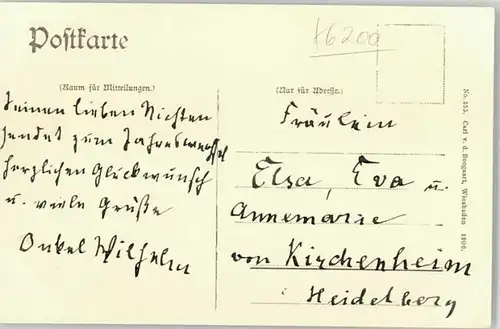 Postkarte
x6200
(Raum für Mitteilungen.)
(Nur für Adresse.)
Seinen lieben Nichten
sendet zum Jahreswechsel
herzlichen Glückwunsch
u. viele Grüße
Onkel Wilhelm
Fräulein
Elsa, Eva u.
Annemarie
von Kirchenheim
Heidelberg
No. 355. Carl v. d. Boogaart, Wiesbaden 1906.